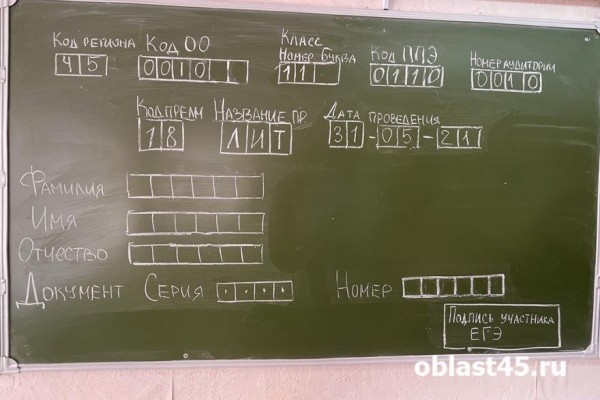 Код региона Код ОО Класс Номер Буква Код ППЭ Номер аудитории
45 0010 11 0110 0010
Код предм Название пр Дата проведения
18 ЛИТ 31-05-21
Фамилия
Имя
Отчество
Документ Серия Номер
Подпись участника
ЕГЭ
oblast45.ru